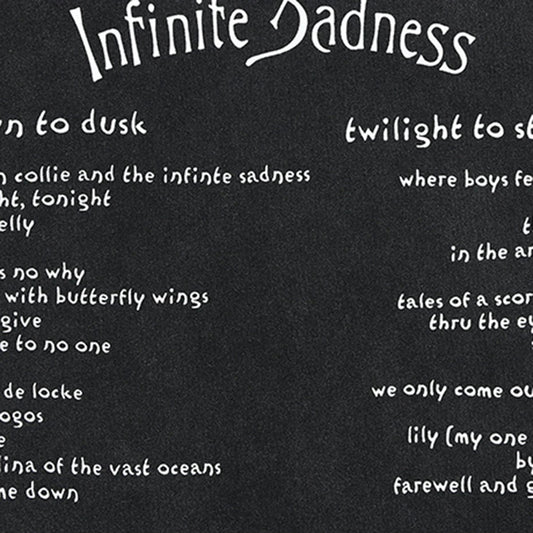 Infinite Sadness
n to dusk
n collie and the infinte sadness
ht, tonight
elly
s no why
with butterfly wings
give
e to no one
de locke
ogos
e
lina of the vast oceans
me down
twilight to st
where boys fe
t
in the ar
tales of a scor
thru the ey
we only come ou
lily (my one
by
farewell and g